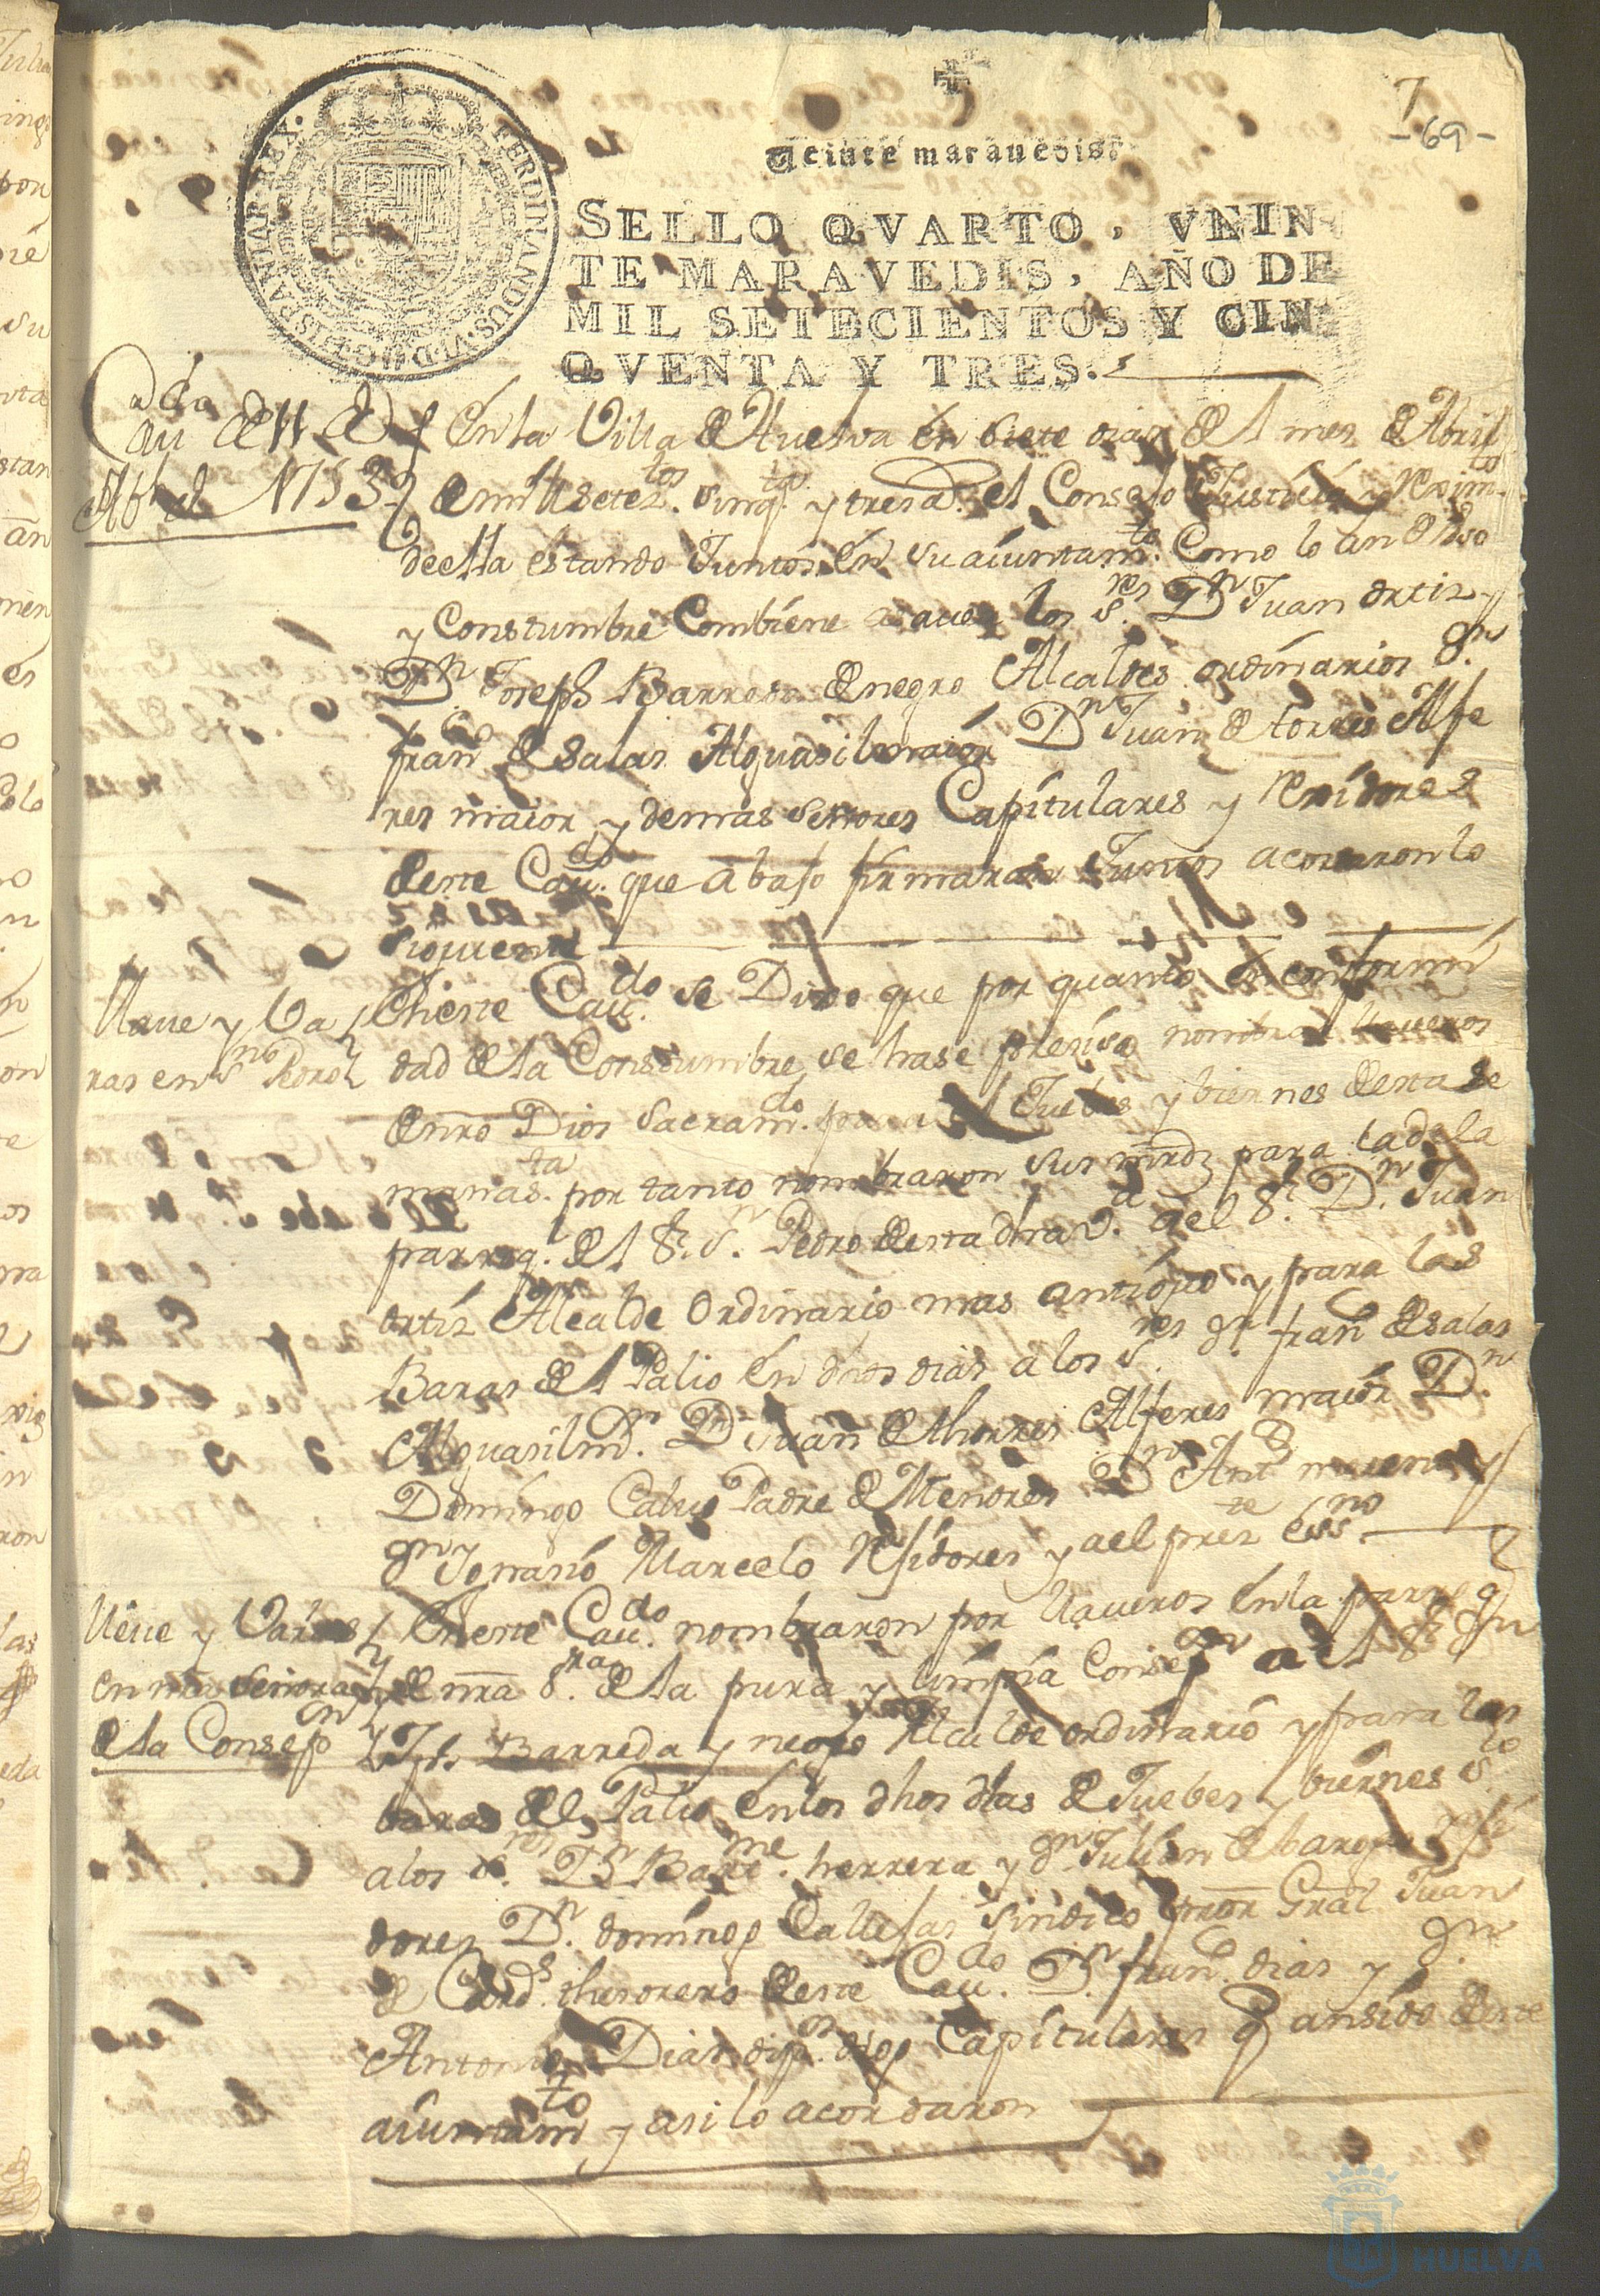 7
-69-
Veinte maravedis.
SELLO QVARTO, VEIN
TE MARAVEDIS, AÑO DE
MIL SETECIENTOS Y CIN
QVENTA Y TRES.
FERDINANDUS.VI.D.G.HISPANIAR.REX.
Cau.do de 11 de
Abril 1753
En la Villa de Huelva en siete dias del mes de Abril
de mill setez.tos sinq.ta y tres a.s el Consejo Justicia y Reximto
de ella estando Juntos en su aiuntam.to Como lo an de uso
y Constumbre Combiene a saver los S.res Dn Juan ortiz y
Dn Joseph Barreda de negro Alcaldes ordinarios Dn
fran.co de Salas Alguasil maior Dn Juan de torres Alfe
res maior y demas señores Capitulares y Rexidores
deste Cau.do que abajo firmaran Juntos acordaron lo
siguiente
Llave y Va
ras en Sn Pedro
En este Cau.do se Dixo que por quanto en conformi
dad de la Constumbre se hase presiso nombrar llaveros
de nro Dios Sacram.do para el Juebes y biernes desta se
mana s.ta por tanto nombraron sus mrds para la de la
parroq.a del Sr. Sn. Pedro desta dha V.a a el Sr. Dn. Juan
ortiz Alcalde Ordinario mas antiguo y para las
Baras del Palio en dhos dias a los S.res Dn fran.co de Salas
Alguasil m.or Dn Juan de thorres Alferes maior Dn.
Domingo Calvo Padre de Menores Dn Ant.o y
Dn Marcelo Rexidores y a el pres.te Ess.no
Llave y Varas
en nra Señora
de la Consep.on
En este Cau.do nombraron por llaveros en la parroq.
de nra S.ra de la pura y limpia Consep.on a el Sr Dn
Jph. Barreda y negro Alcalde ordinario y para las
baras del Palio en los dhos dias de Juebes y biernes S.to
a los S.res Dn Barme. herrera y Dn Julian de Rexi
dores Dn. domingo Callejas Sindico Pror Gral Juan
de Cord.s thesorero deste Cau.do Dn. fran.co dias y Dn
Antonio Dias Capitulares q an sido deste
aiuntam.to y asi lo acordaron
HUELVA